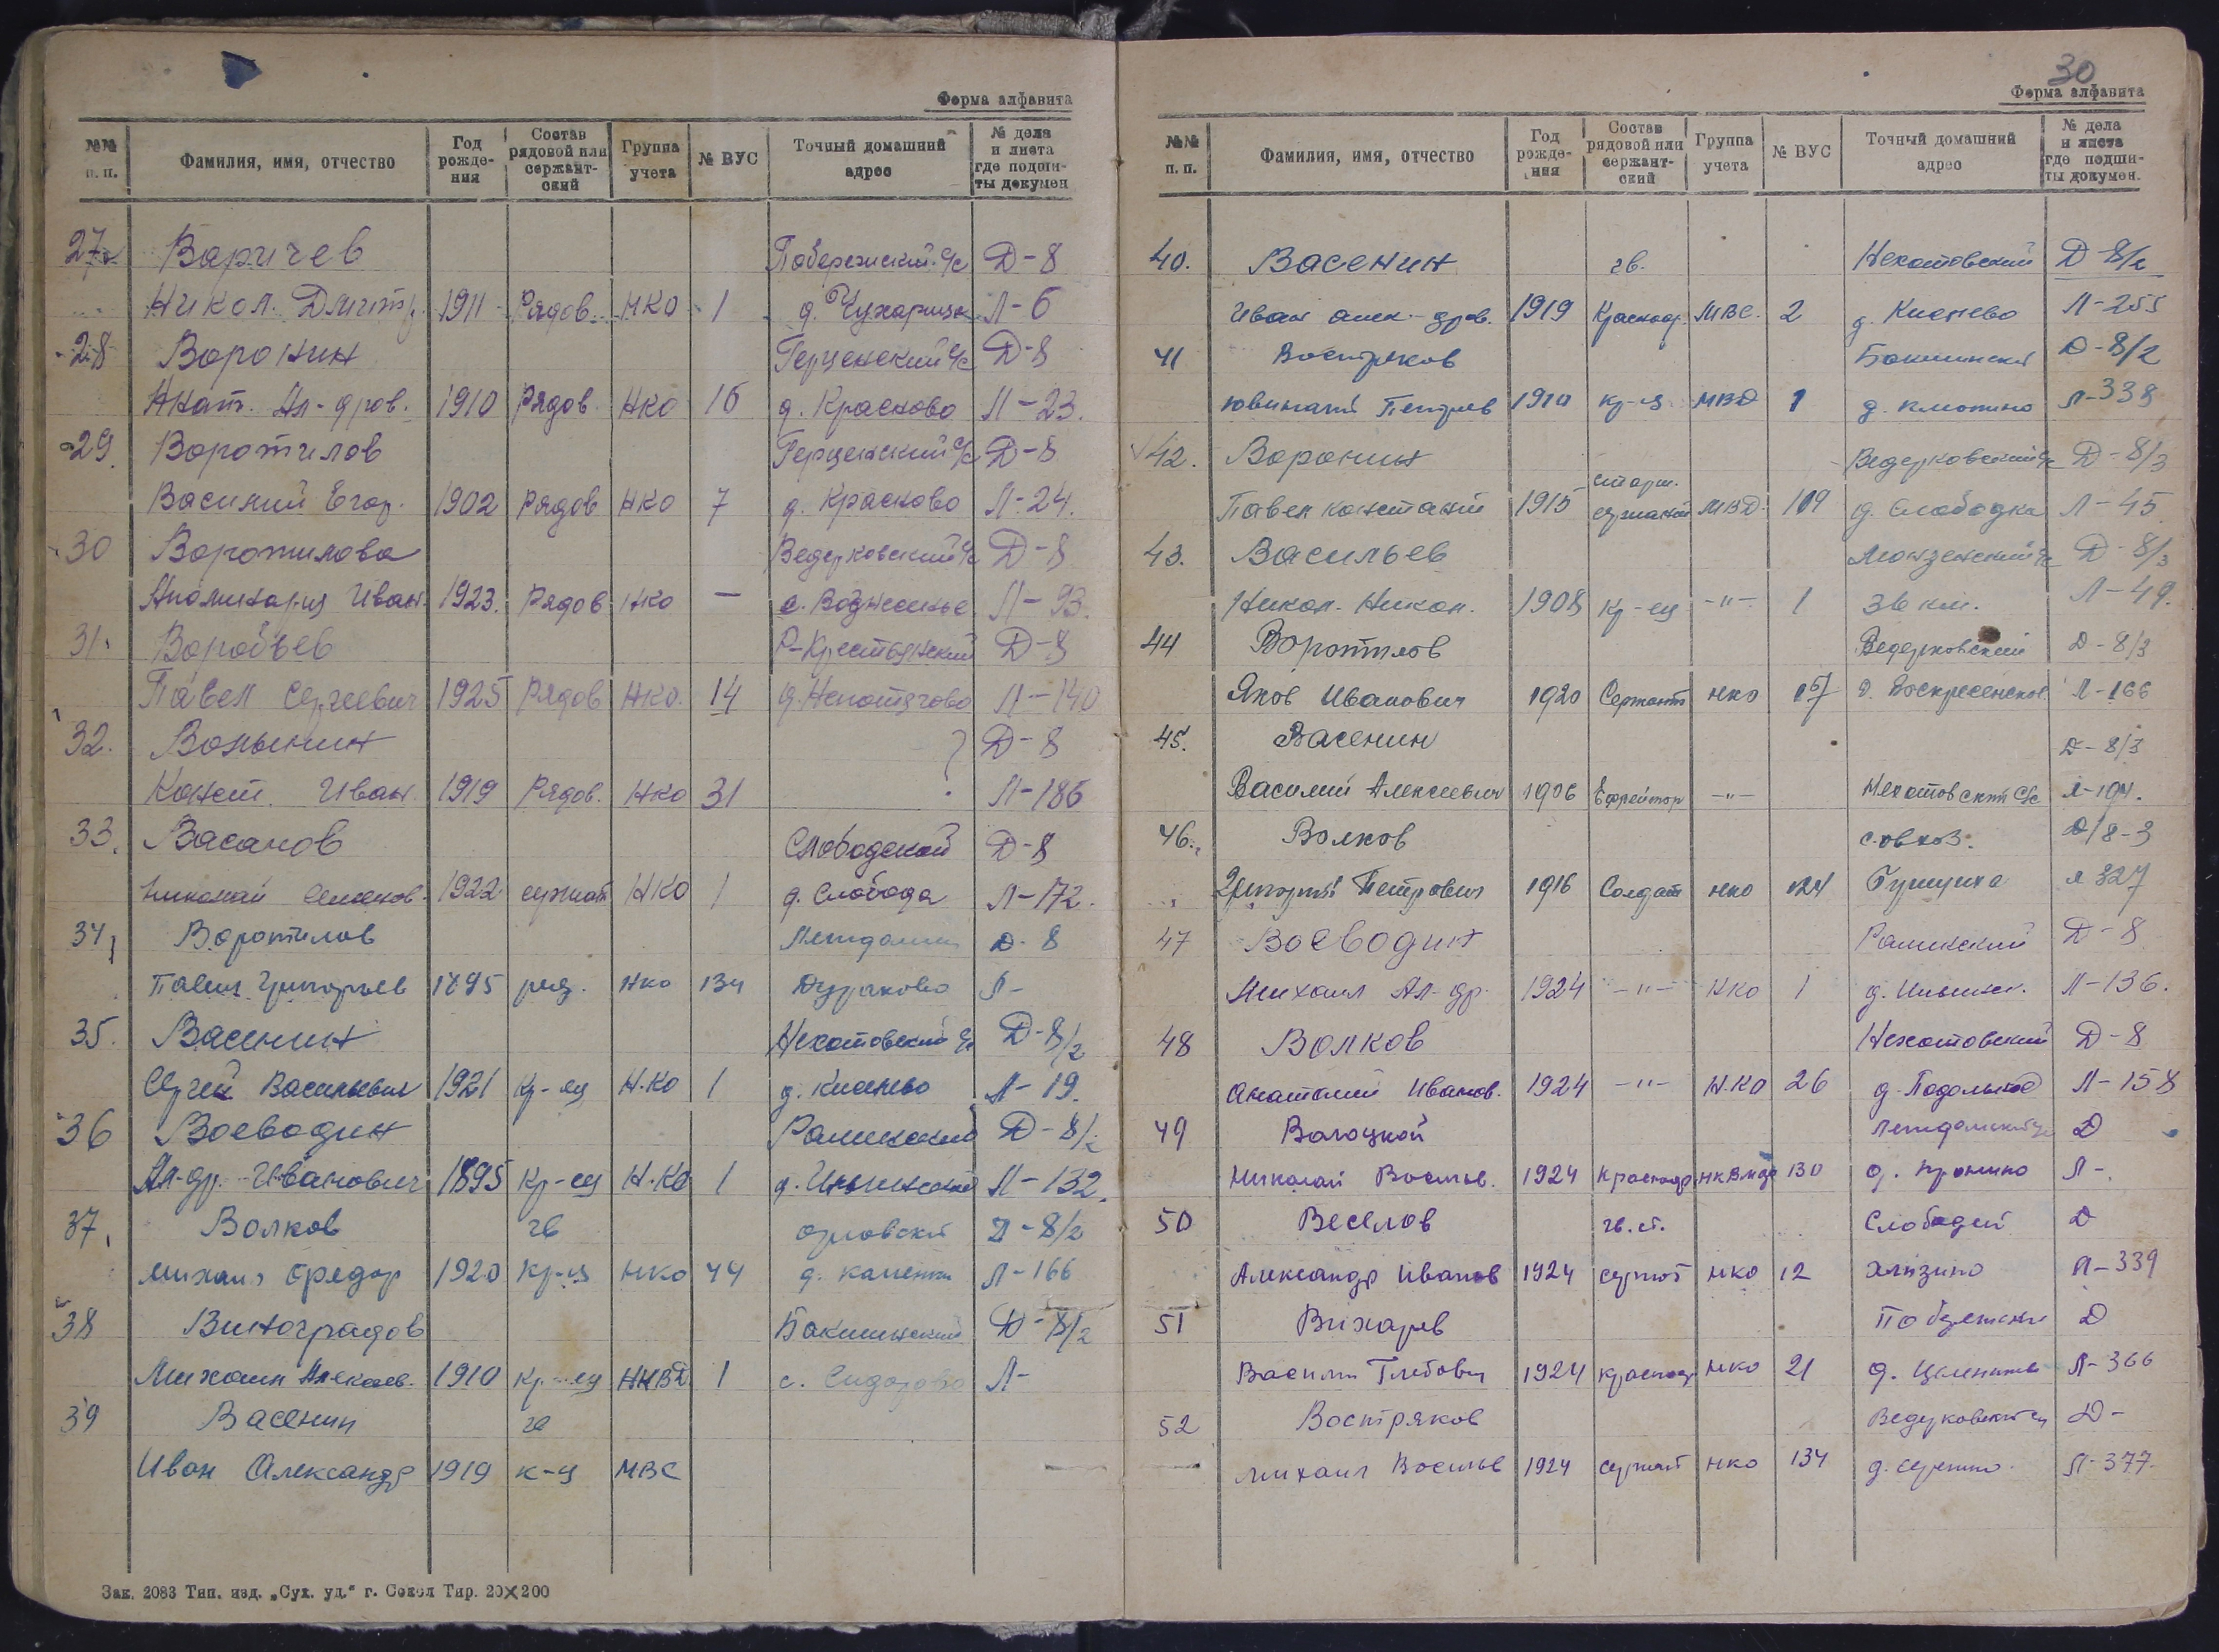 Форма алфавита
№№ п. п. Фамилия, имя, отчество Год рождения Состав рядовой или сержантский Группа учета № ВУС Точный домашний адрес № дела и листа где подшиты докумен
27 Варичев Побережский с/с Д-8
Никол. Дмитр. 1911 Рядов. НКО 1 д. Л-6
28 Воронин Герценский с/с Д-8
Анат. Ал-дров. 1910 Рядов. НКО 16 д. Красково Л-23.
29. Воротилов Герценский с/с Д-8
Василий Егор. 1902 Рядов НКО 7 д. Красково Л-24.
30 Воротилова Ведерковский с/с Д-8
Аполинария Иван. 1923. Рядов НКО — с. Вознесенье Л-93.
31. Воробьев Р-Крестьянский Д-8
Павел Сергеевич 1925 Рядов НКО. 14 д. Непотягово Л-140
32. Волынин ? Д-8
Конст. Иван. 1919 Рядов. НКО 31 Л-186
33. Васанов Слободской Д-8
Николай Семенов. 1922 сержант НКО 1 д. Слобода Л-172.
34 Воротилов Д-8
Павел Григорьев 1895 ряд. НКО 134 Дураково Л-
35. Васенин Нехотовский с/с Д-8/2
Сергей Васильевич 1921 Кр-ец Н.КО 1 д. Княжево Л-19.
36 Воеводин Раменский Д-8/2
Ал-др. Иванович 1895 Кр-ец Н.КО 1 д. Ильинской Л-132.
37. Волков гв Орловский Д-8/2
Михаил Федор 1920 Кр-ц НКО 44 д. Л-166
38 Виноградов Бакшинский Д-8/2
Михаил Алексеев. 1910 Кр-ец НКВД 1 с. Сидорово Л-
39 Васенин гв
Иван Александр 1919 к-ц МВС
Зак. 2083 Тип. изд. „Сух. уд.“ г. Сокол Тир. 20×200
30
Форма алфавита
№№ п. п. Фамилия, имя, отчество Год рождения Состав рядовой или сержантский Группа учета № ВУС Точный домашний адрес № дела и листа где подшиты докумен.
40. Васенин гв. Нехотовский Д-8/2
Иван Алек-дров. 1919 Красноар. МВС. 2 д. Княжево Л-255
41 Востряков Бакшинский Д-8/2
Петров 1910 кр-ц МВД 1 д. Л-338
42. Воронин Ведерковский с/с Д-8/3
Павел Констант 1915 старш. сержант МВД 109 д. Слободка Л-45
43. Васильев Монзенский с/с Д-8/3
Никол. Никол. 1908 Кр-ец -"- 1 36 км. Л-49.
44 Воротилов Ведерковский Д-8/3
Яков Иванович 1920 Сержант НКО Воскресенское Л-166
45. Васенин Д-8/3
Василий Алексеевич 1906 Ефрейтор -"- Нехотовский С/с Л-194.
46. Волков совхоз. Д/8-3
Григорий Петрович 1916 Солдат НКО 124 Л 327
47 Воеводин Раменский Д-8
Михаил Ал-др. 1924 -"- НКО 1 д. Ильинск. Л-136.
48 Волков Нехотовский Д-8
Анатолий Иванов. 1924 -"- Н.КО 26 д. Подольное Л-158
49 Волоцкой Д
Николай Васильев. 1924 Красноар. 130 д. Пронино Л-
50 Веселов гв. ст. Слободской Д
Александр Иванов 1924 сержант НКО 12 Хлызино Л-339
51 Вихарев Побережский Д
Василий Глебович 1924 Красноар НКО 21 д. Л-366
52 Востряков Ведерковский Д-
Михаил Васильев 1924 сержант НКО 134 д. Л-377.